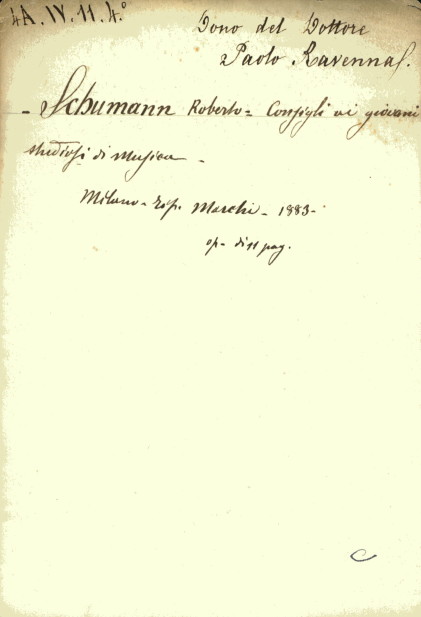 4A.IV.11.4.°
Dono del Dottore
Paolo Ravenna
- Schumann Roberto = Consigli ai giovani
studiosi di Musica -
Milano - Tip. Marchi - 1883 -
op - di 11 pag.